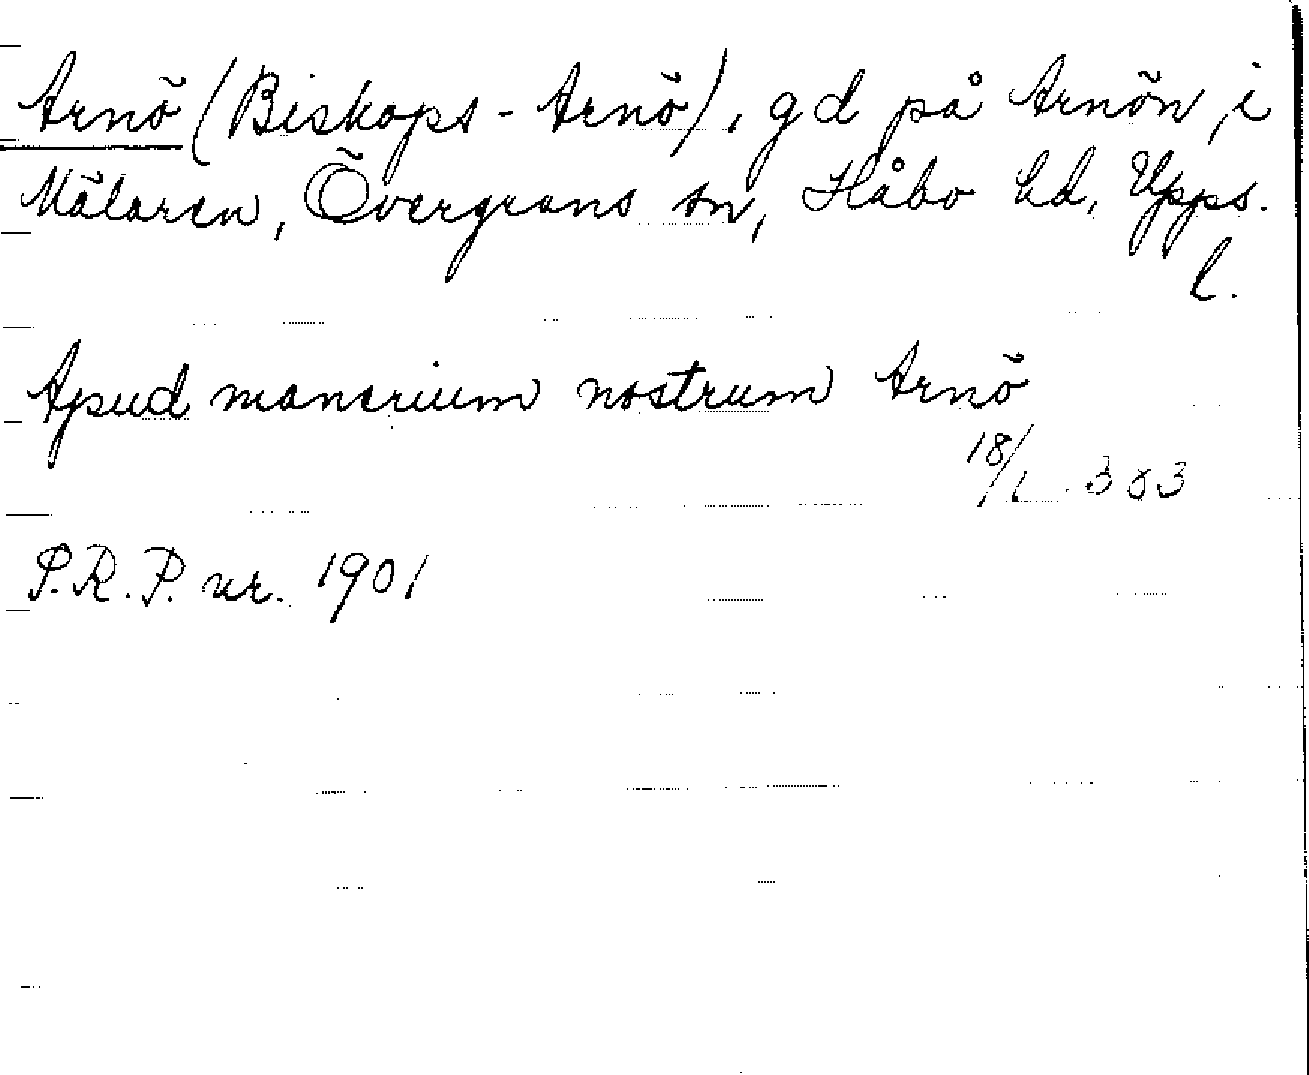 Arnö (Biskops-Arnö), gd på Arnön, i
Mälaren, Övergrans sn, Håbo hd, Upps.
l.
Apud manerium nostrum Arnö
18/1 383
S.R.P. nr. 1901